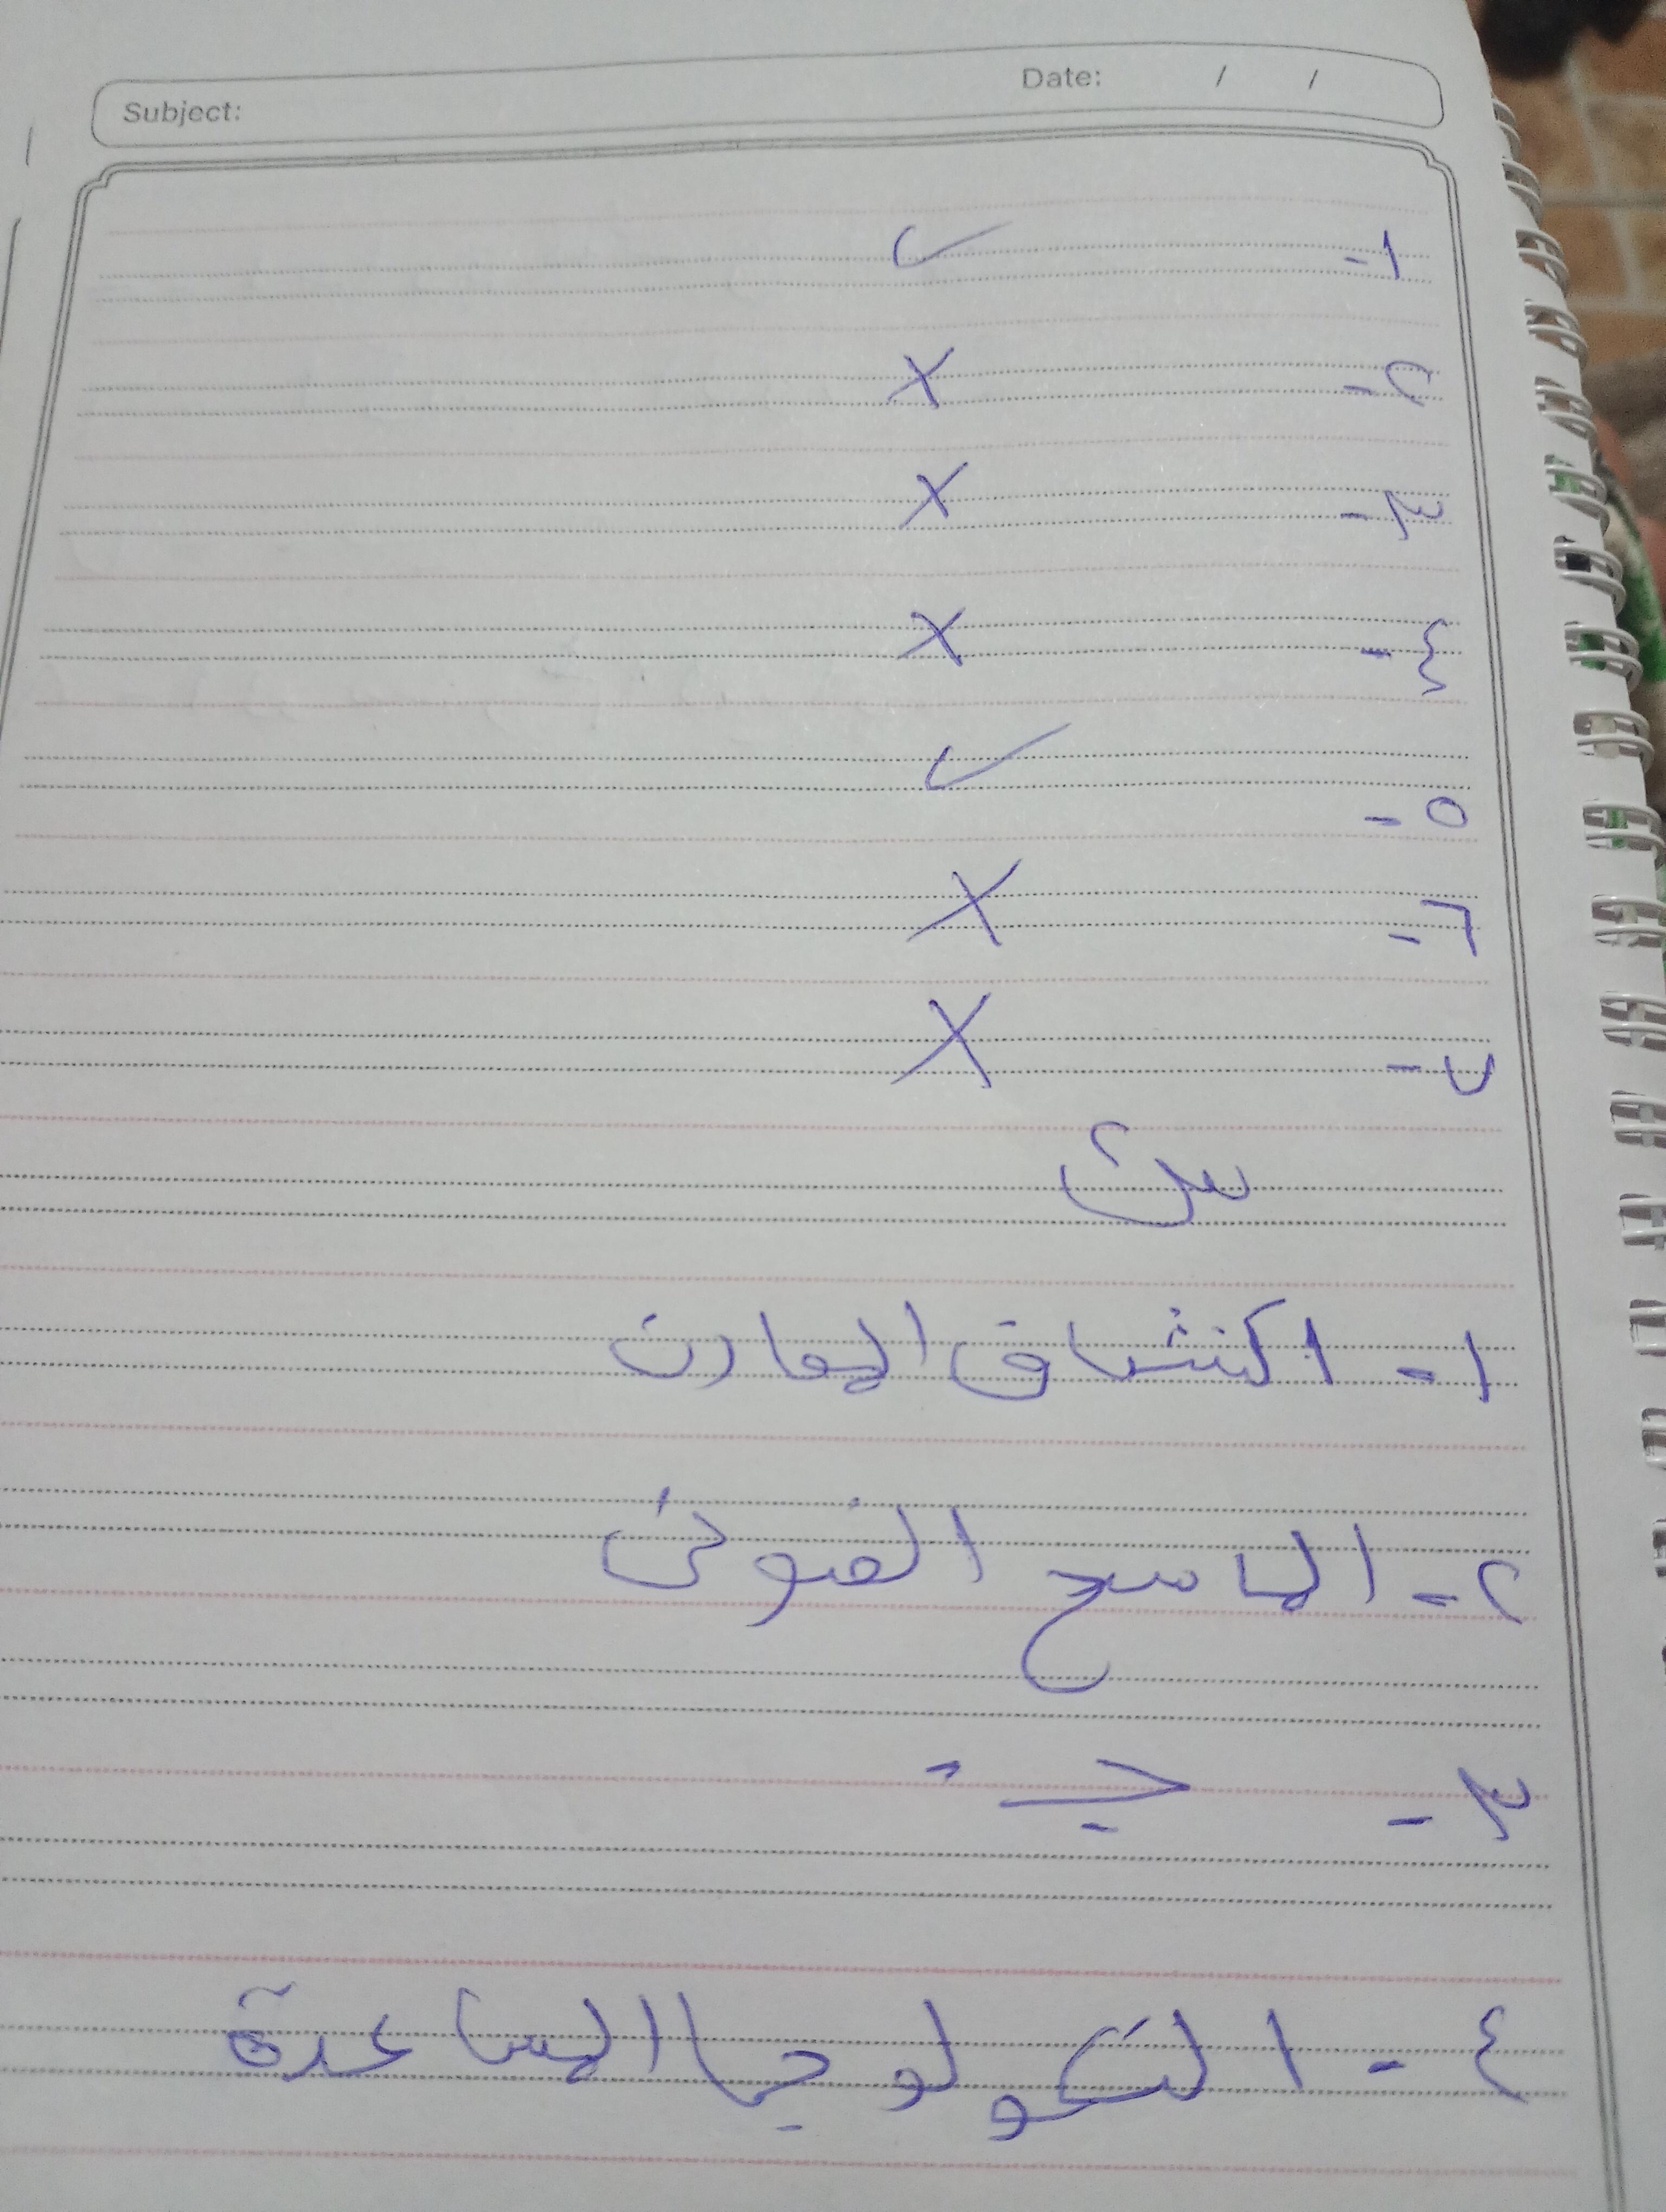 Subject:
Date: / /
١- ✓
٢- ✗
٣- ✗
٤- ✗
٥- ✓
٦- ✗
٧- ✗
س٢
١- اكتشاف المعادن
٢- الماسح الضوئى
٣-
٤- التكنولوجيا المساعدة